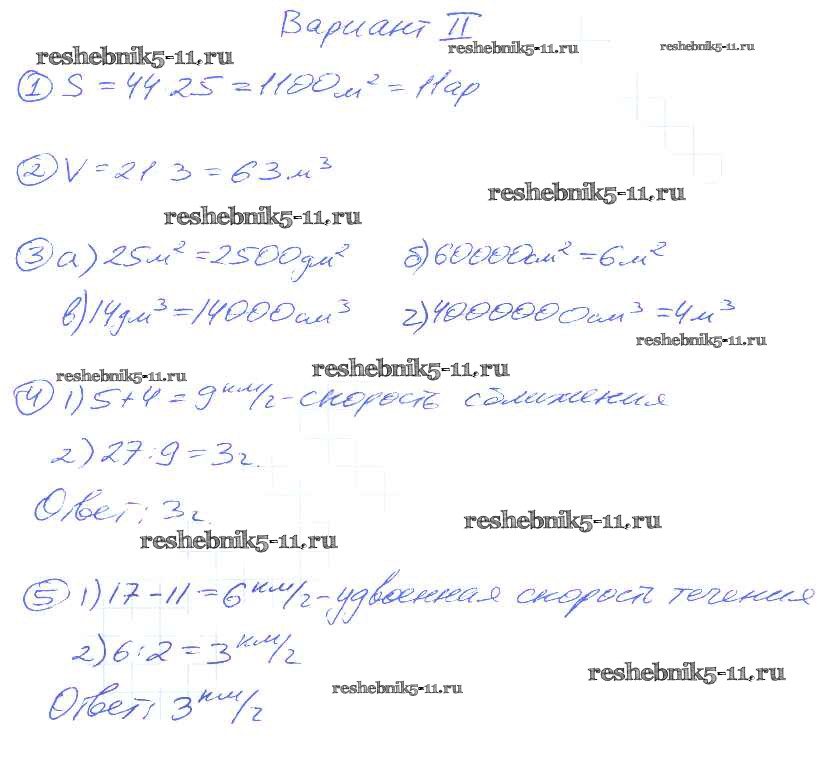 Вариант II
reshebnik5-11.ru reshebnik5-11.ru reshebnik5-11.ru
① S = 44·25 = 1100 м² = 11 ар
② V = 21·3 = 63 м³
reshebnik5-11.ru
reshebnik5-11.ru
③ а) 25 м² = 2500 дм² б) 60000 см² = 6 м²
в) 14 дм³ = 14000 см³ г) 4000000 см³ = 4 м³
reshebnik5-11.ru
reshebnik5-11.ru reshebnik5-11.ru
④ 1) 5 + 4 = 9 км/ч - скорость сближения
2) 27 : 9 = 3 ч.
Ответ: 3 ч.
reshebnik5-11.ru
reshebnik5-11.ru
⑤ 1) 17 - 11 = 6 км/ч - удвоенная скорость течения
2) 6 : 2 = 3 км/ч
reshebnik5-11.ru reshebnik5-11.ru
Ответ: 3 км/ч